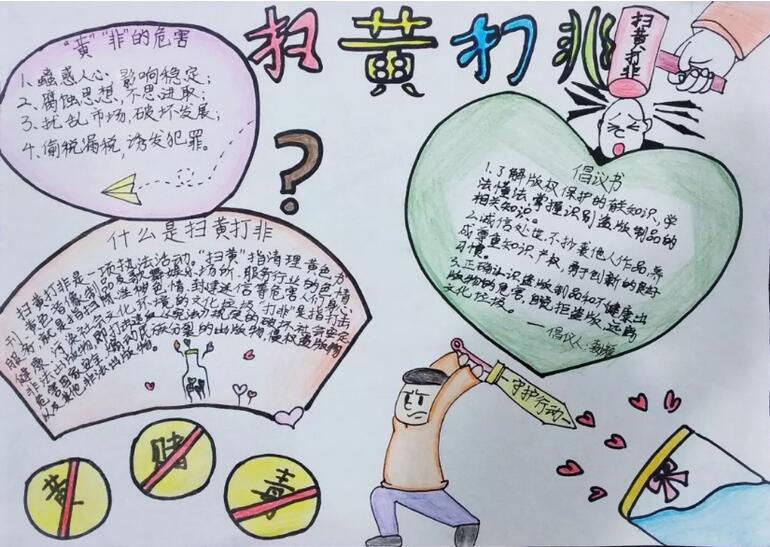 扫黄打非
扫黄打非
"黄""非"的危害
1、蛊惑人心,影响稳定;
2、腐蚀思想,不思进取;
3、扰乱市场,破坏发展;
4、偷税漏税,诱发犯罪。
?
什么是扫黄打非
扫黄打非是一项执法活动。"扫黄"指清理黄色书
刊、黄色音像制品及歌舞娱乐场所、服务行业的色情
服务,就是指扫除淫秽色情,封建迷信等危害人们身心
健康、污染社会文化环境的文化垃圾,打非"是指打击
非法出版物,即打击违反《宪法》规定的破坏社会安定
危害国家安全、煽动民族分裂的出版物,侵权盗版物
以及其他非法出版物。
倡议书
1.了解版权保护的有关知识,学
法懂法,掌握识别盗版制品的
相关知识。
2.诚信处世,不抄袭他人作品,养
成尊重知识产权,勇于创新的良好
习惯。
3.正确认识盗版制品和不健康出
版物的危害,自觉拒盗版,远离
文化垃圾。
——倡议人:
守护行动
黄
赌
毒